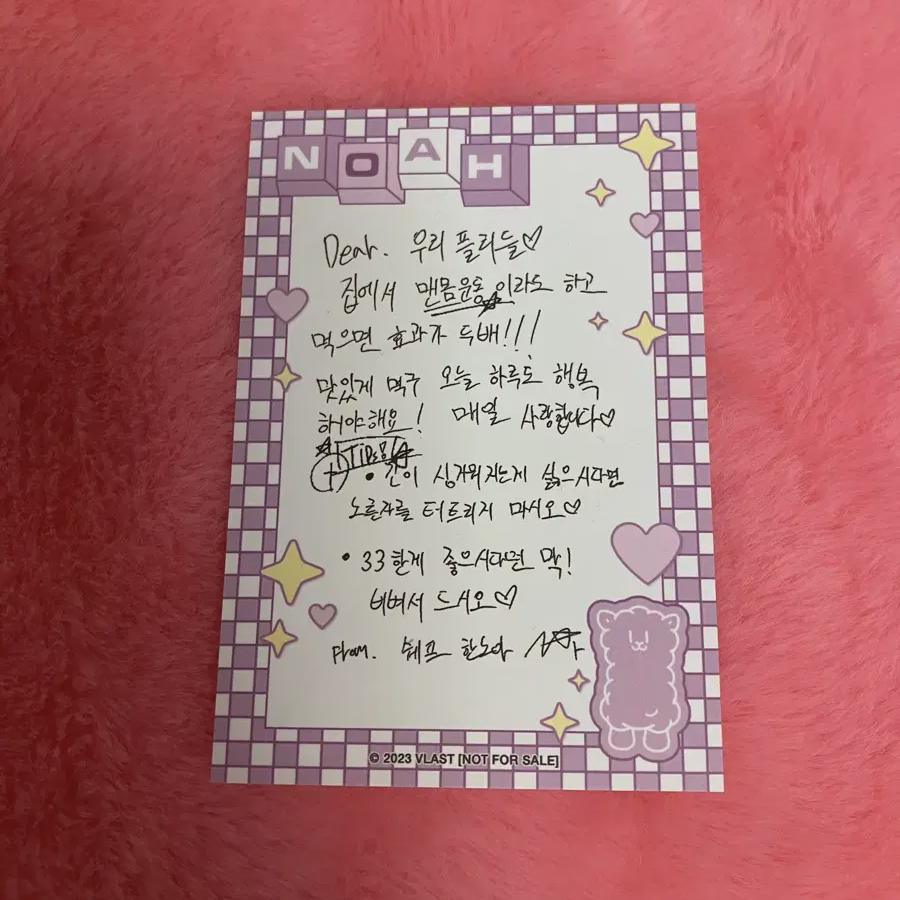 NOAH
Dear. 우리 플리들♡
집에서 맨몸운동이라도 하고
먹으면 효과가 두배!!!
맛있게 먹구 오늘 하루도 행복
해야해요! 매일 사랑합니다♡
+ Tips
• 간이 싱거워지는게 싫으시다면
노른자를 터트리지 마시오♡
• 33한게 좋으시다면 막!
비벼서 드시오♡
From. 쉐프 한노아
© 2023 VLAST [NOT FOR SALE]